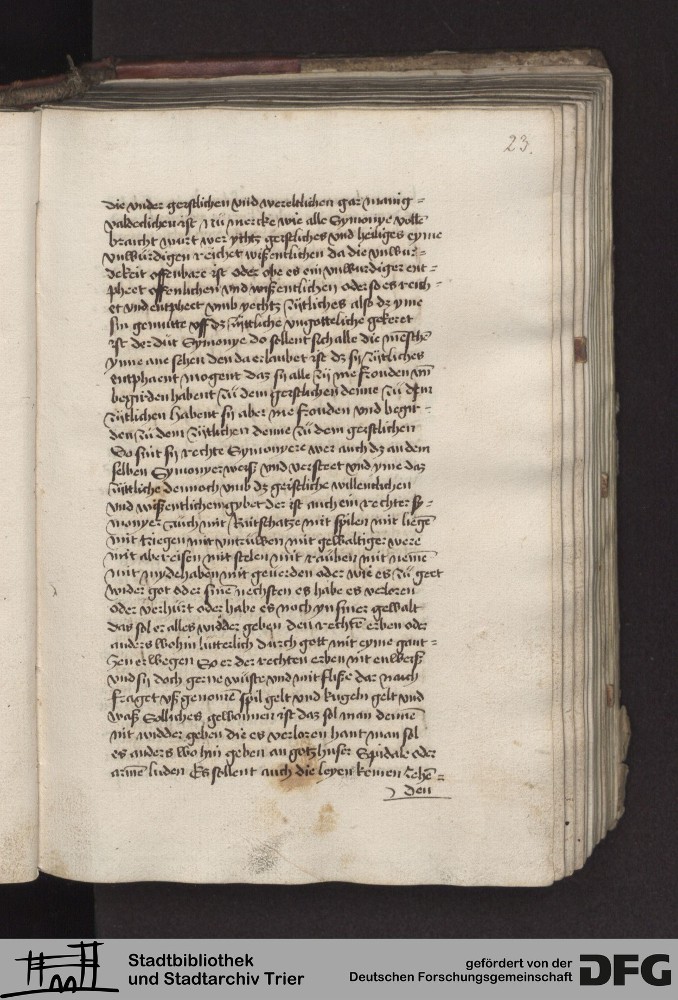 23.
die vnder geistlichen vnd wereltlichen gar manig=
valdeclichen ist Nu mercke wie alle Symonye volle
braicht wurt wer ychtz geistliches vnd heiliges eyme
vnwurdigen reichet wißentlichen da die vnwur=
dekeit offenbare ist oder obe es ein vnwurdiger ent=
pheet offenlichen vnd wißentlichen oder so es reich=
et vnd entpheet vmb yechtz zijtliches also dz yme
sin gemutte vff dz zijttliche vngotteliche gekeret
ist der dut Symonye do sollent sich alle die mēschē
ynne ane sehen den da erlaubet ist dz sij zijtliches
entphaent mogent daz sij alle zij me frouden vn̄
begirden habent zu dem geistlichen denne zu dem
zijtlichen Habent sij aber me frouden vnd begir=
den zu dem zijtlichen denne zu dem geistlichen
So sint sij rechte Symonyere wer auch dz an dem
selben Symonyer weiß vnd versteet vnd yme daz
zijttliche dennoch vmb dz geistliche willentlichen
vnd wißentlichen gybet der ist auch ein rechter sy=
monyer Auch mit Rütschatze mit spilen mit liegē
mit triegen mit vntruwen mit gewaltiger were
mit abereisen mit stelen mit rauben mit nemē
mit mydehaben mit geuerden oder wie es zu geet
wider got oder sinē nechsten es habe es verloren
oder verhurt oder habe es noch yn siner gewalt
das sol er alles widder geben den rechtē erben oder
anders wohin lutterlich durch gott mit eyme gant=
zen erwegen So er der rechten erben nit enweiß
vnd sij doch gerne wuste vnd mit fliße dar nach
fraget vß genomē spil gelt vnd kugeln gelt vnd
waß Solliches gewonnen ist daz sol man dennē
nit widder geben die es verloren hant man sol
es anders wo hin geben an gotzhuser Spidale oder
armē luden Es sollent auch die leyen keinen zehē=
den
Stadtbibliothek
und Stadtarchiv Trier
gefördert von der
Deutschen Forschungsgemeinschaft
DFG